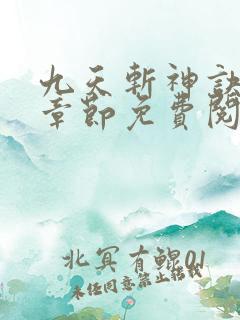 九天斬神訣
章節免費閱
北冥有鯤01
未任同意禁止搭載